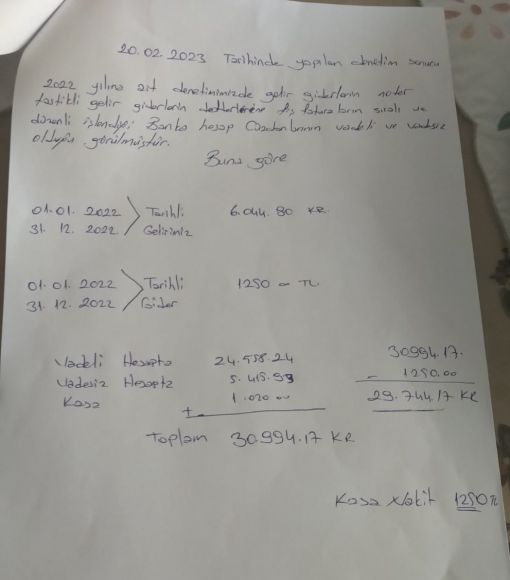 20.02.2023 Tarihinde yapılan denetim sonucu
2022 yılına ait denetimimizde gelir giderlerin noter
tastikli gelir giderlerin defterlerine fatura ların sıralı ve
düzenli işlendiği; Banka hesap Cüzdanlarının vadeli ve vadesiz
olduğu görülmüştür.
Buna göre
01.01.2022 Tarihli 6.044.80 KR.
31.12.2022 Gelirimiz
01.01.2022 Tarihli 1250 - TL
31.12.2022 Gider
Vadeli Hesapta 24.558.24
Vadesiz Hesapta 5.415.93
Kasa 1.020 00
+
Toplam 30.994.17 KR
30994.17.
- 1250.00
29.744.17 KR
Kasa Nakit 1250 TL